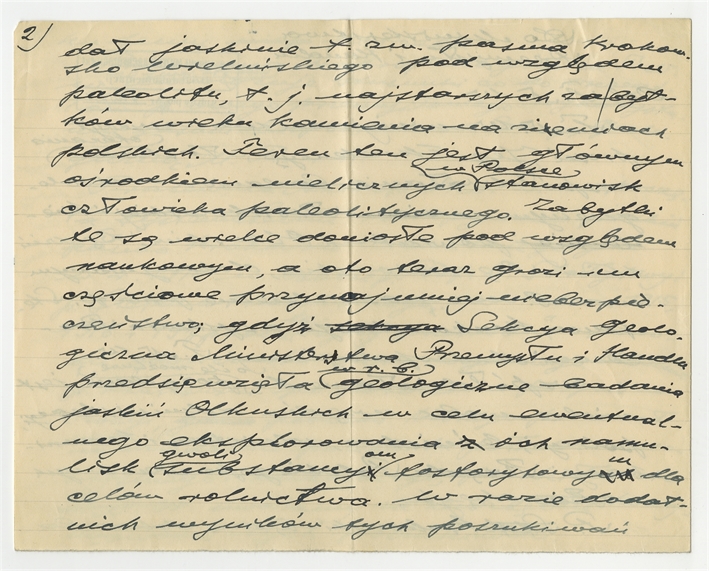 2)
dał jaskinie t. zw. pasma Krakow-
sko Wieluńskiego pod względem
paleolitu, t. j. najstarszych zabyt-
ków wieku kamienia na ziemiach
polskich. Teren ten jest głównym
w Polsce
ośrodkiem nielicznych stanowisk
człowieka paleolitycznego. Zabytki
te są wielce doniosłe pod względem
naukowym, a oto teraz grozi im
częściowe przynajmniej niebezpie-
czeństwo, gdyż Sekcya Geolo-
giczna Ministerstwa Przemysłu i Handlu
w r. b.
przedsięwzięła geologiczne badania
jaskiń Olkuskich w celu ewentual-
nego eksplorowania z ich namu-
gwoli om m
lisk substancyi fosforytowy dla
celów rolnictwa. W razie dodat-
nich wyników tych poszukiwań